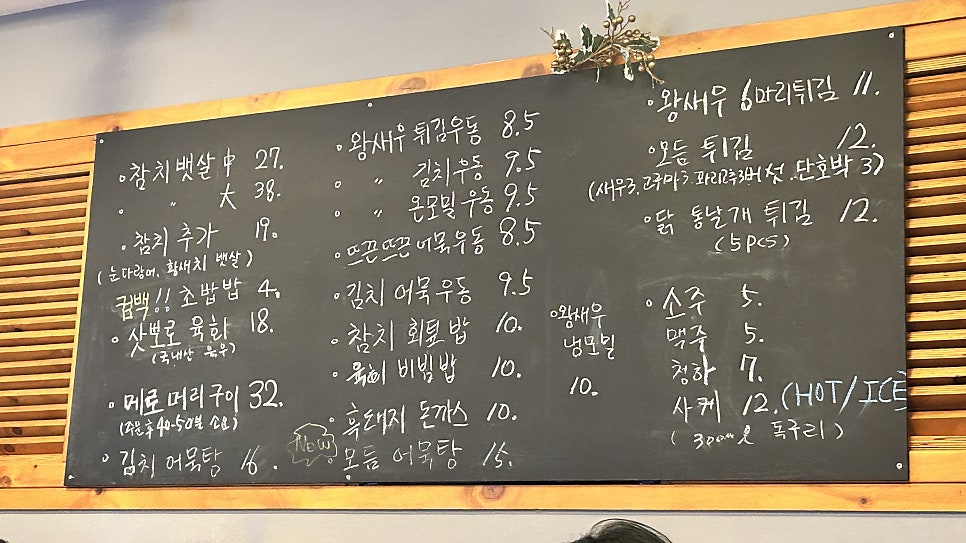 ∘참치뱃살 中 27.
∘ 〃 大 38.
∘참치 추가 19.
(눈다랑어, 황새치 뱃살)
컴백!! 초밥밥 4.
∘삿뽀로 육화 18.
(국내산 육우)
∘메로머리구이 32.
(주문후 40-50분 소요)
∘김치어묵탕 16.
∘왕새우 튀김우동 8.5
∘ 〃 김치우동 9.5
∘ 〃 온모밀우동 9.5
∘뜨끈뜨끈어묵우동 8.5
∘김치어묵우동 9.5
∘참치 회덮밥 10.
∘육회 비빔밥 10.
∘흑돼지 돈까스 10.
NEW ∘모듬 어묵탕 15.
∘왕새우
냉모밀
10.
∘왕새우 6마리튀김 11.
∘모듬 튀김 12.
(새우3, 고구마3, 꽈리고추3, 버섯, 단호박 3)
∘닭 통날개 튀김 12.
(5pcs)
∘소주 5.
맥주 5.
청하 7.
사케 12. (HOT/ICE)
(300ml 독구리)